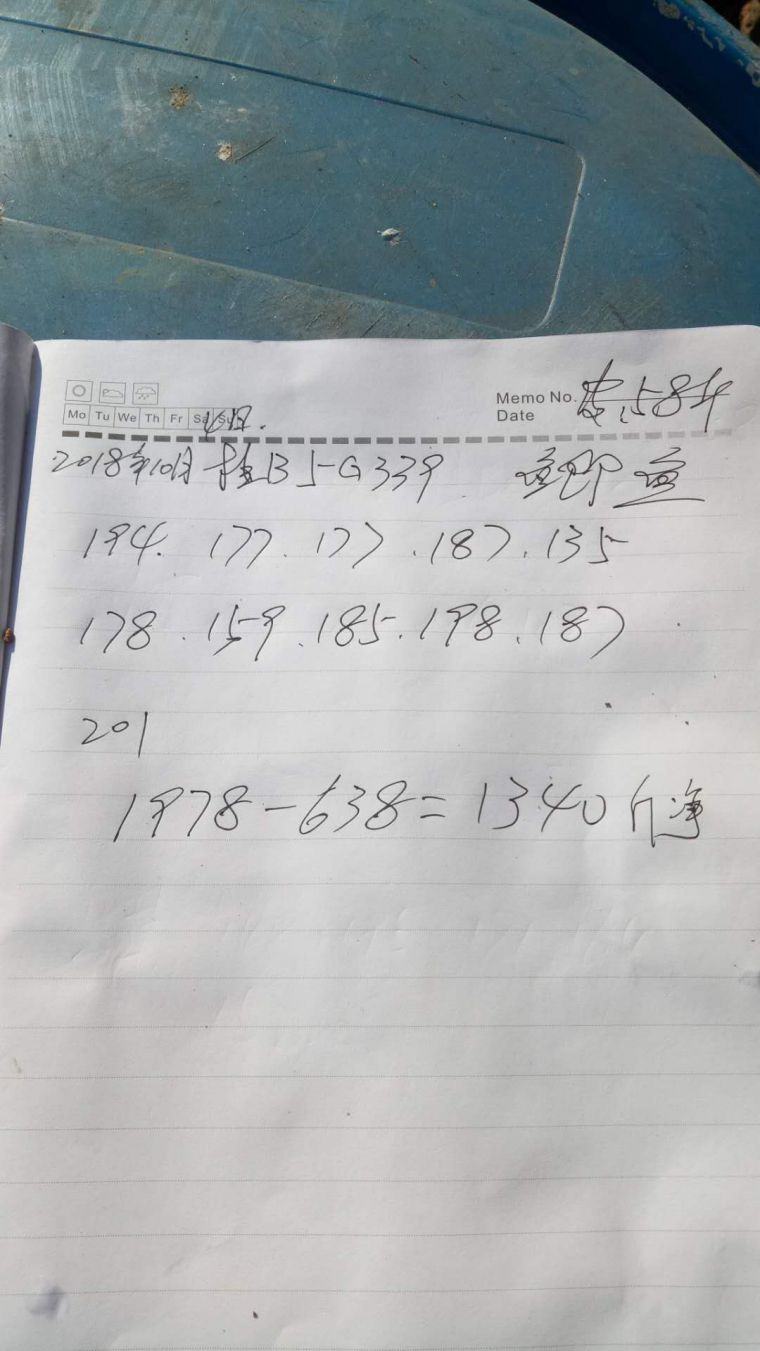 Memo No. 58斗
Mo Tu We Th Fr Sa Su Date
2018年10月 桂B5-G339
194. 177. 177. 187. 135
178. 159. 185. 198. 187
201
1978-638=1340斤净